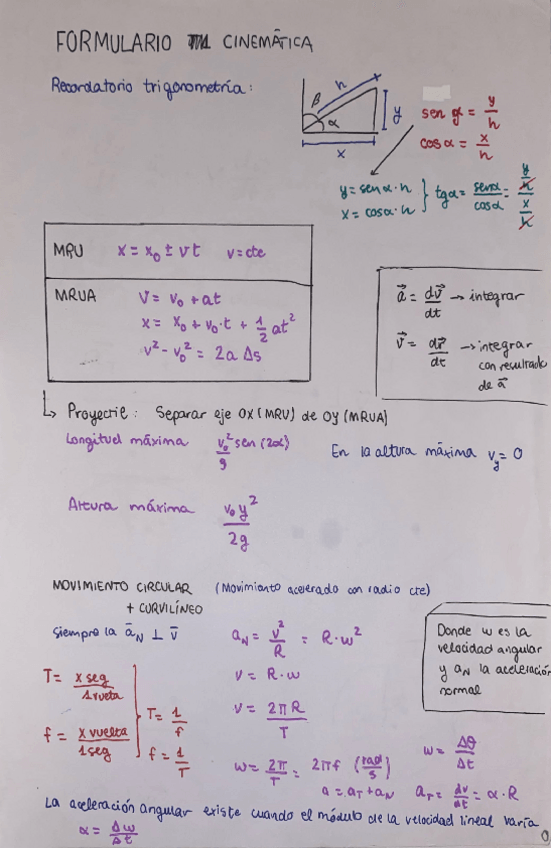 FORMULARIO CINEMÁTICA
Recordatorio trigonometría:
h
β
α
y
x
sen α = y/h
cos α = x/h
y = sen α · h
x = cos α · h
tg α = sen α / cos α = (y/h) / (x/h)
MRU x = x₀ ± vt v = cte
MRUA v = v₀ + at
x = x₀ + v₀·t + 1/2 at²
v² - v₀² = 2a Δs
a⃗ = dv⃗/dt → integrar
v⃗ = dr⃗/dt → integrar
con resultado
de a⃗
↳ Proyectil: Separar eje OX (MRU) de OY (MRUA)
Longitud máxima v₀² sen (2α) / g
En la altura máxima v_y = 0
Altura máxima v₀y² / 2g
MOVIMIENTO CIRCULAR (Movimiento acelerado con radio cte)
+ CURVILÍNEO
Siempre la a⃗_N ⊥ v⃗
a_N = v²/R = R·w²
v = R·w
v = 2πR/T
w = 2π/T = 2πf (rad/s)
w = Δθ/Δt
a = a_T + a_N
a_T = dv/dt = α·R
Donde w es la
velocidad angular
y a_N la aceleración
normal
T = x seg / 1 vuelta
f = x vuelta / 1 seg
T = 1/f
f = 1/T
La aceleración angular existe cuando el módulo de la velocidad lineal varía
α = Δw/Δt